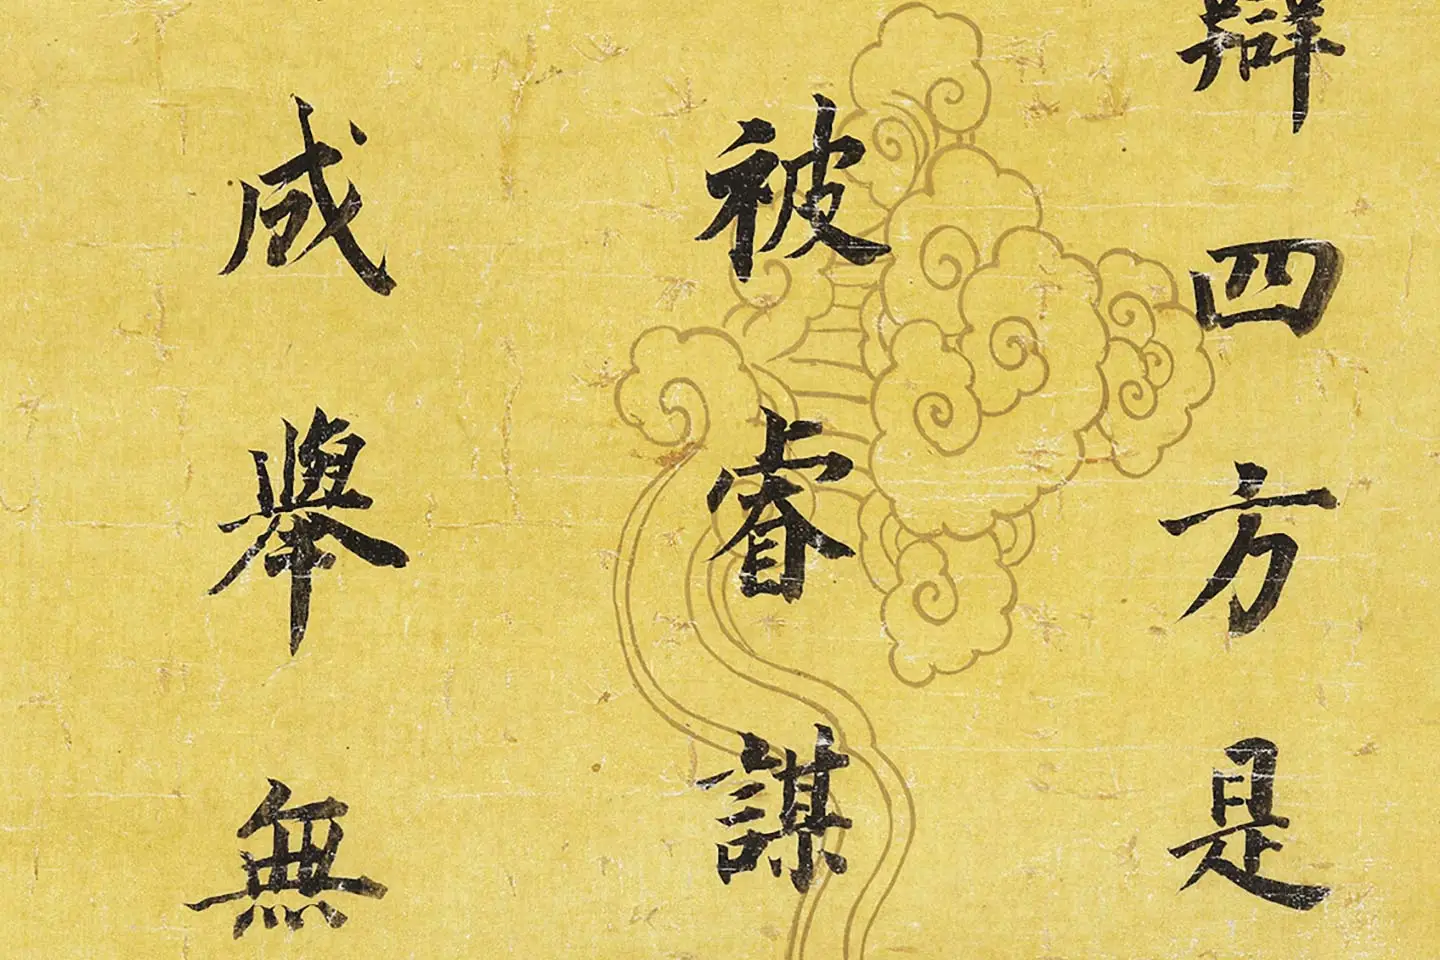 四方是
被睿謀
咸舉無